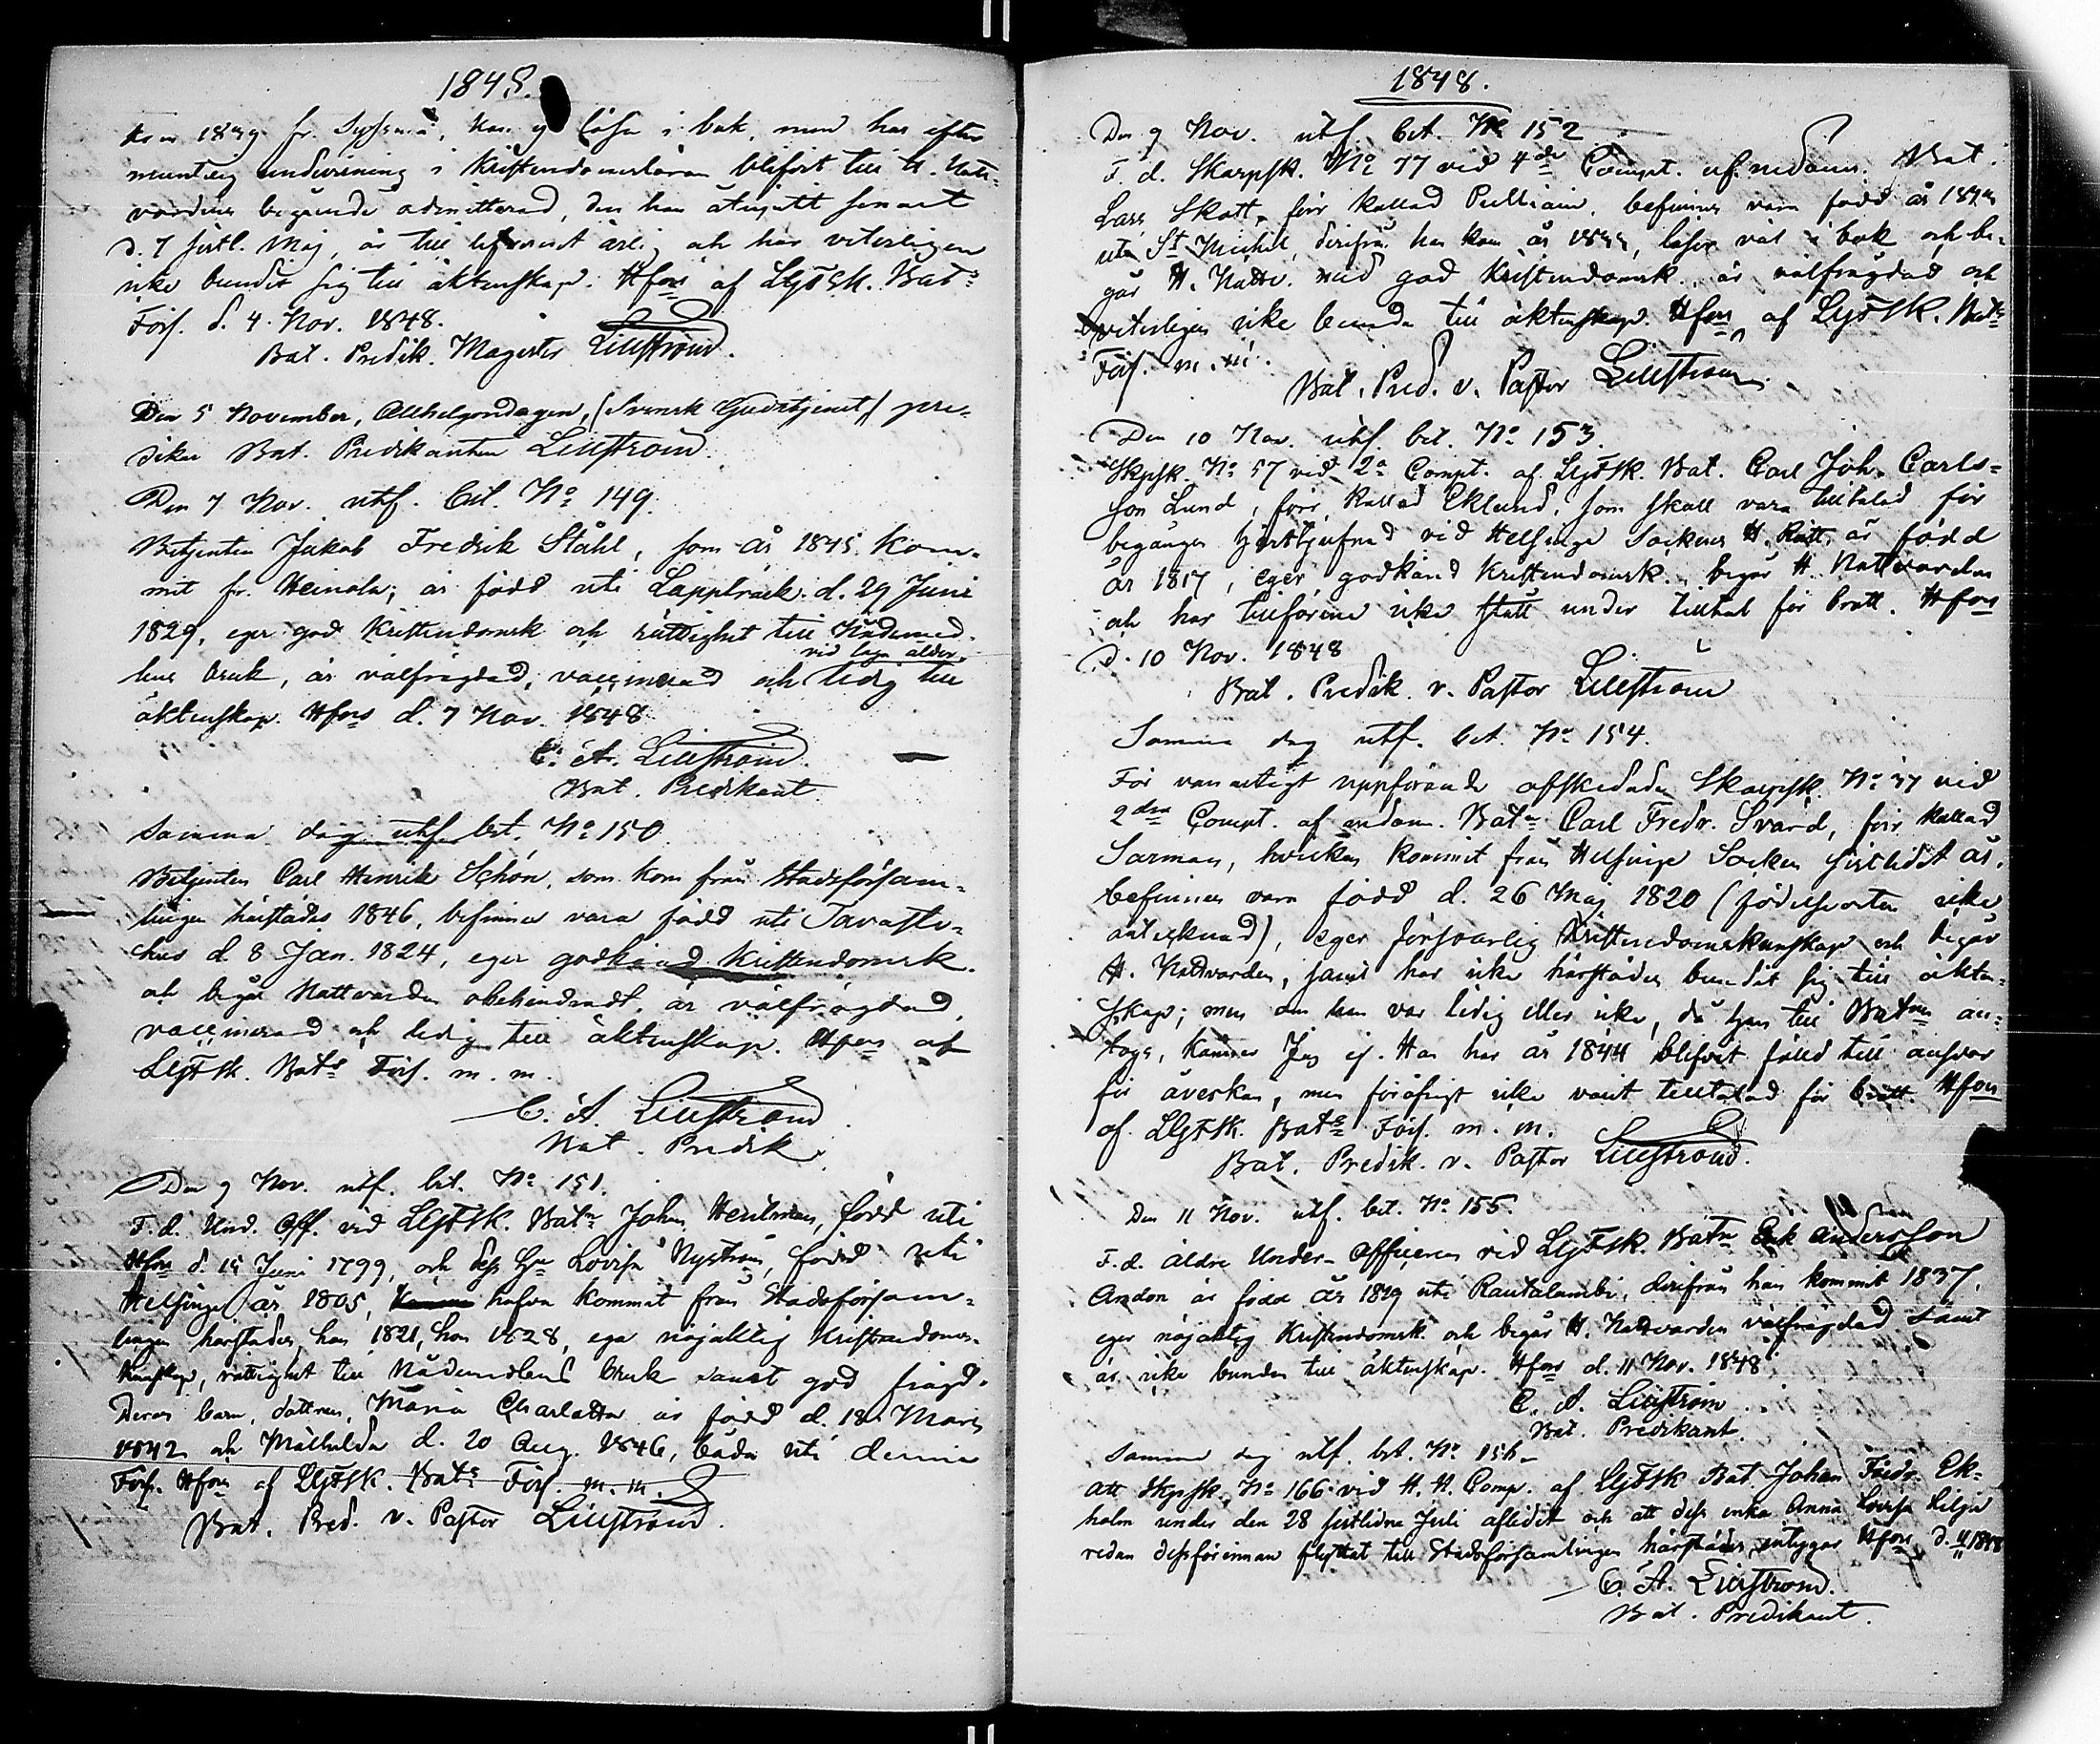 1848.
kom 1839 fr. Sysmä, kan ej läsa i bok, men har efter
muntlig undervisning i Kristendomsläran blifvit till H. Natt-
vardens begående admitterad, den han åtnjutit senast
d. 7 sistl. Maj, är till lefvernet ärlig och har veterligen
icke bundit sig till äktenskap. Hfors af LGFSk. Bats
Förs. d. 4 Nov. 1848.
Bat. Predik. Magister Lilliström.
Den 5 November, Allhelgondagen, (Svensk Gudstjenst) pre-
dikar Bat. Predikanten Lilliström.
Den 7 Nov. utf. bet. No 149.
Betjenten Jakob Fredrik Ståhl, som år 1845 kom-
mit fr. Heinola, är född uti Lappträsk d. 29 Juni
1829, eger god Kristendomsk. och rättighet till Nådemed-
vid laga ålder
lens bruk, är välfrägdad, vaccinerad och ledig till
äktenskap. Hfors d. 7 Nov. 1848
C. A. Lilliström
Bat. Predikant.
Samma dag utf. bet. No 150.
Betjenten Carl Henrik Schön, som kom från Stadsförsam-
lingen härstädes 1846, befinnes vara född uti Tavaste-
hus d. 8 Jan. 1824, eger godkänd Kristendomsk.
och begår Nattvarden obehindradt, är välfrägdad,
vaccinerad och ledig till äktenskap. Hfors af
LGFSk. Bats Förs. m. m.
C. A. Lilliström
Bat. Predik.
Den 9 Nov. utf. bet. No 151.
F. d. Und. Off. vid LGFSk. Batn Johan, född uti
Hfors d. 15 Juni 1799, och dess Hu Lovisa Nyström, född uti
Helsinge år 1805, hafva kommit från Stadsförsam-
lingen härstädes, han 1821, hon 1828, ega nöjaktig Kristendoms-
kunskap, rättighet till Nådemedlens bruk samt god frägd.
Deras barn, döttrar, Maria Charlotta är född d. 18 Mars
1842 och Mathilda d. 20 Aug. 1846, båda uti denna
Förs. Hfors af LGFSk. Bats Förs. m. m.
Bat. Pred. v. Pastor Lilliström.
1848.
Den 9 Nov. utf. bet. No 152
F. d. Skarpsk. No 77 vid 4de Compt. af nedann. Bat.
Lars Skott, förr kallad Pulliain, befinnes vara född år
uti St Michel, derifrån han kom år, läser väl i bok och be-
går H. Nattv. med god Kristendomsk. är välfrägdad och
veterligen icke bunden till äktenskap. Hfors af LGFSk. Bats
Förs. m. m.
Bat. Pred. v. Pastor Lilliström.
Den 10 Nov. utf. bet. No 153.
Skpsk. No 57 vid 2a Compt. af LGFSk. Bat. Carl Joh. Carls-
son Lund, förr kallad Eklund, som skall vara tilltalad för
begången vid Helsinge Sockens H. Rätt, är född
år 1817, eger godkänd Kristendomsk. begår H. Nattvarden
och har tillförene icke stått under tilltal för brott. Hfors
d. 10 Nov. 1848
Bat. Predik. v. Pastor Lilliström
Samma dag utf. bet. No 154.
För vanartigt uppförande afskedade Skarpsk. No 37 vid
2dra Compt. af nedann. Batn Carl Fredr. Svärd, förr kallad
Sarman, hvilken kommit från Helsinge Socken sistlidit år,
befinnes vara född d. 26 Maj 1820 (födelseorten icke
antecknad), eger försvarlig Kristendomskunskap och begår
H. Nattvarden, samt har icke härstädes bundit sig till äkten-
skap; men om han var ledig eller icke, då han till Batn an-
togs, känner Jag ej. Han har år 1844 blifvit fälld till ansvar
för åverkan, men föröfrigt icke varit tilltalad för brott. Hfors
af LGFSk. Bats Förs. m. m.
Bat. Predik. v. Pastor Lilliström.
Den 11 Nov. utf. bet. No 155.
F. d. äldre Under-Officeren vid LGFSk. Batn Erik Andersson
är född år 1819 uti Rautalambi, derifrån han kommit 1837,
eger nöjaktig Kristendomsk. och begår H. Nattvarden välfrägdad samt
är icke bunden till äktenskap. Hfors d. 11 Nov. 1848
C. A. Lilliström
Bat. Predikant.
Samma dag utf. bet. No 156.
Att Skpsk. No 166 vid H. H. Comp. af LGFSk Bat. Johan Fredr. Ek-
holm under den 28 sistlidne Juli aflidit och att dess enka Anna Lovisa Lilja
redan dessförinnan flyttat till Stadsförsamlingen härstädes, intygar Hfors d. 11/11 1848
C. A. Lilliström.
Bat. Predikant.